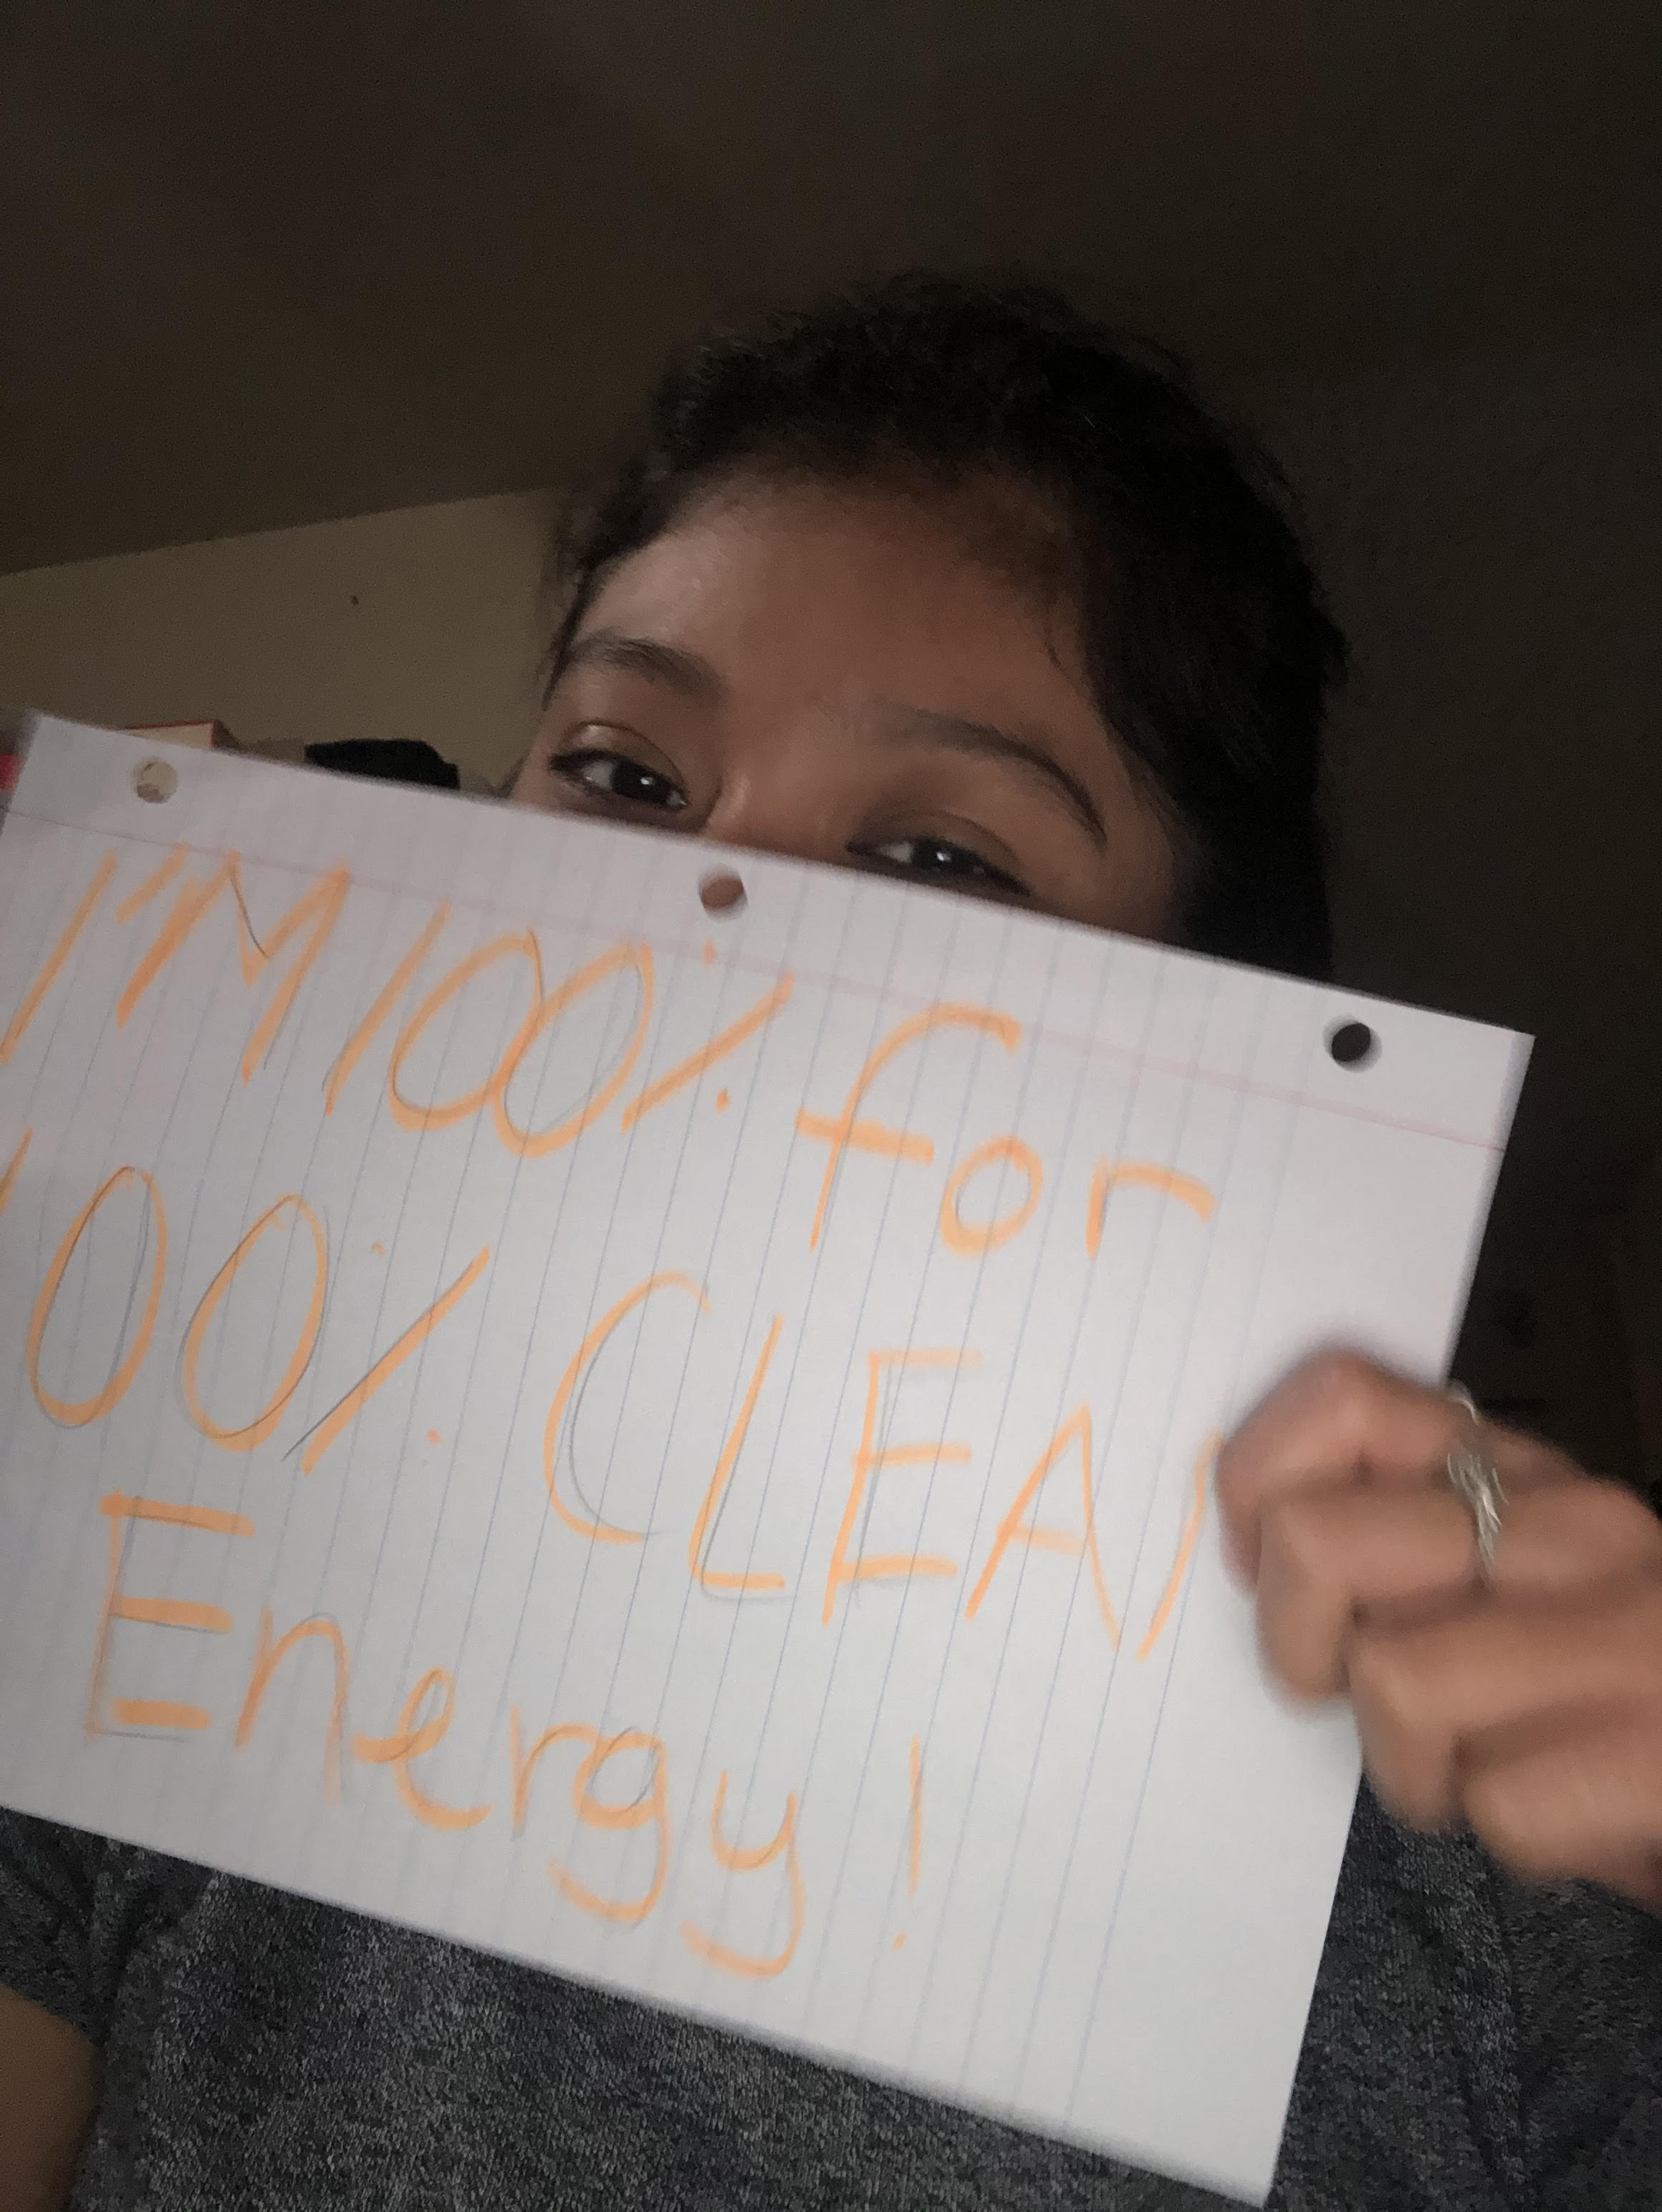 I'M 100% for
100% CLEAN
Energy!